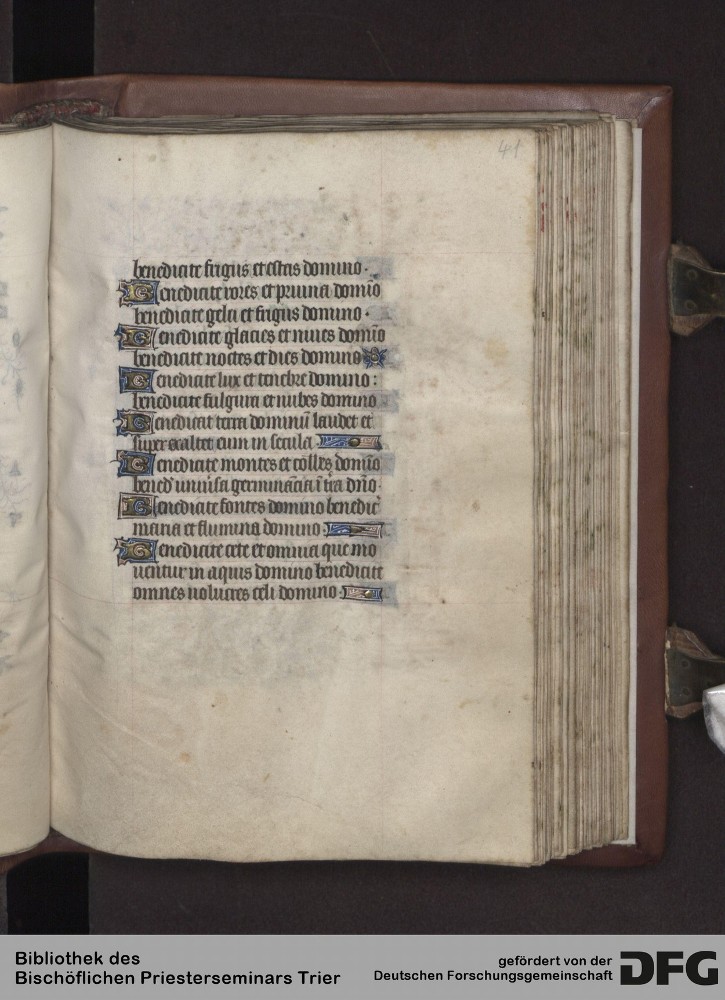 41
benedicite frigus et estas domino.
Benedicite rores et pruina domīo
benedicite gelu et frigus domino.
Benedicite glacies et niues domīo
benedicite noctes et dies domino
Benedicite lux et tenebre domino:
benedicite fulgura et nubes domino
Benedicat terra dominū laudet et
super exaltet eum in secula.
Benedicite montes et colles domīo
bened uniūsa germinācia ī t̄ra dn̄o.
Benedicite fontes domino benedic̄
maria et flumina domino.
Benedicite cete et omnia que mo
uentur in aquis domino benedicite
omnes uolucres celi domino.
Bibliothek des
Bischöflichen Priesterseminars Trier
gefördert von der
Deutschen Forschungsgemeinschaft
DFG